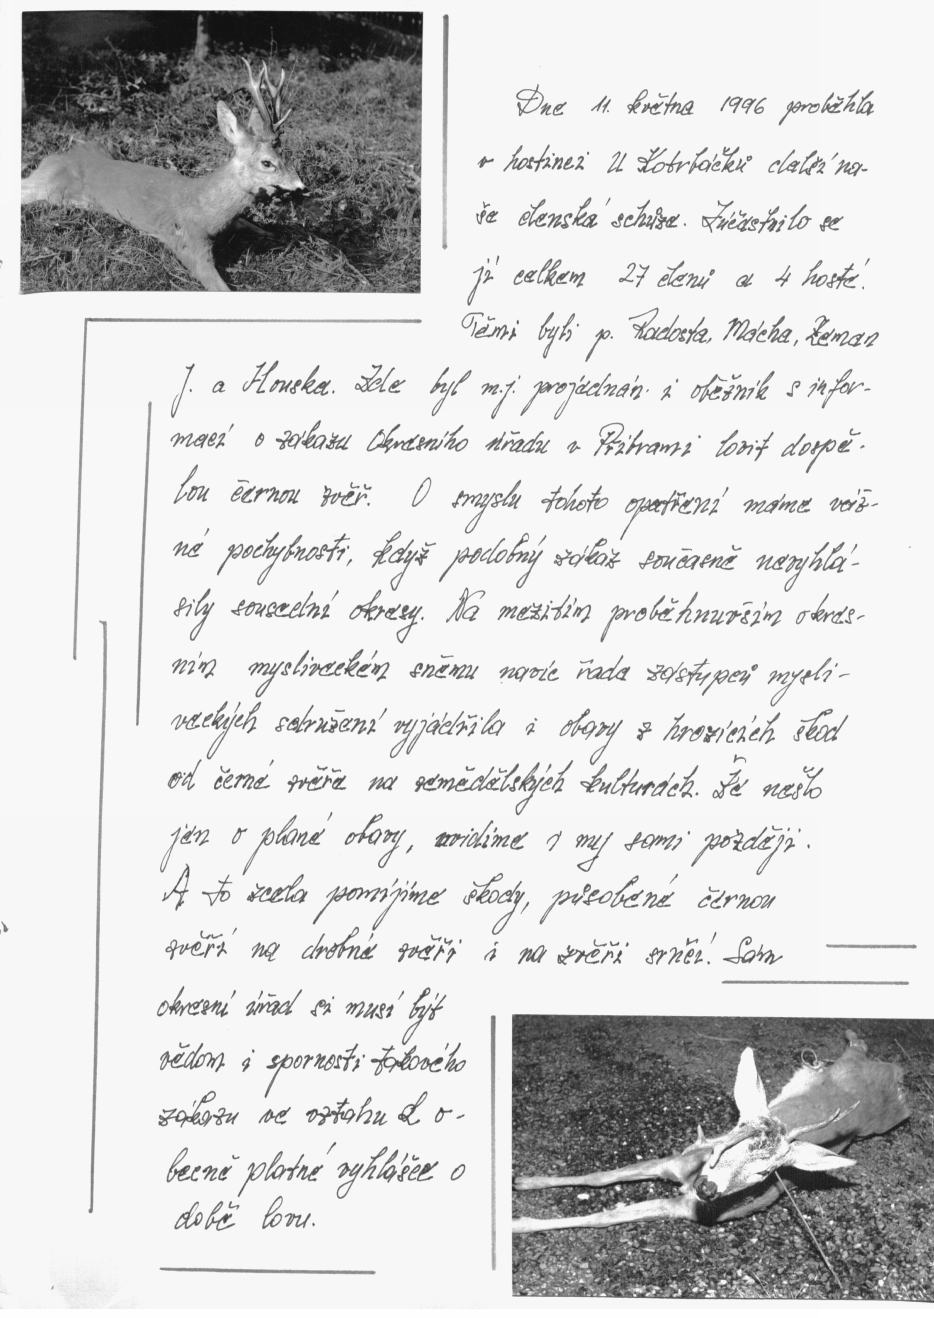 Dne 11. května 1996 proběhla
v hostinci U Kotrbáčků další na-
še členská schůze. Zúčastnilo se
jí celkem 27 členů a 4 hosté.
Těmi byli p. Radosta, Mácha, Zeman
J. a Houska. Zde byl m.j. projednán i oběžník s infor-
mací o zákazu Okresního úřadu v Příbrami lovit dospě-
lou černou zvěř. O smyslu tohoto opatření máme váž-
né pochybnosti, když podobný zákaz současně nevyhlá-
sily sousední okresy. Na mezitím proběhnuvším okres-
ním mysliveckém sněmu navíc řada zástupců mysli-
veckých sdružení vyjádřila i obavy z hrozících škod
od černé zvěře na zemědělských kulturách. Že nešlo
jen o plané obavy, uvidíme i my sami později.
A to zcela pomíjíme škody, působené černou
zvěří na drobné zvěři i na zvěři srnčí. Sám
okresní úřad si musí být
vědom i spornosti takového
zákazu ve vztahu k o-
becně platné vyhlášce o
době lovu.